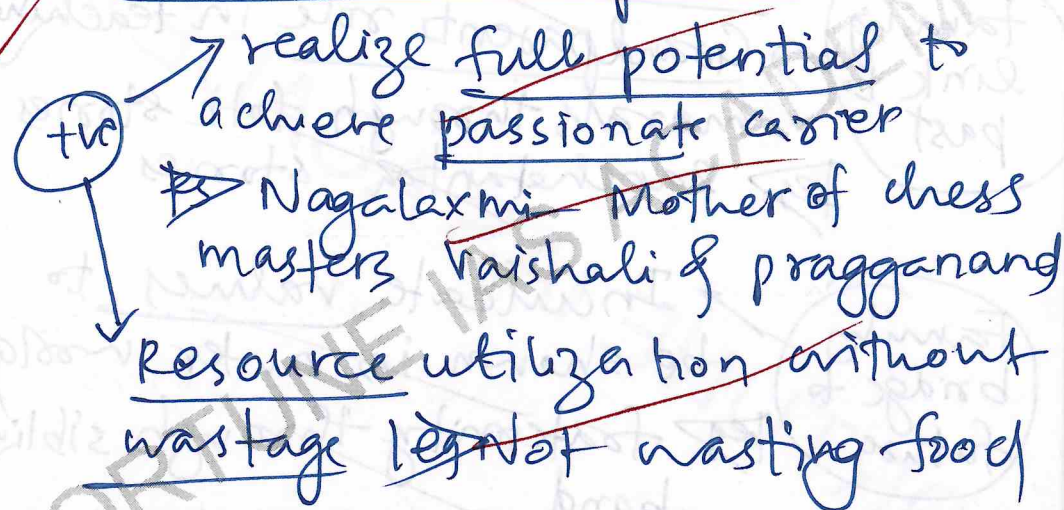 realize full potential to
+ve achieve passionate carier
Nagalaxmi - Mother of chess
masters Vaishali & pragganand
Resource utilization without
wastage eg Not wasting food
FORTUNE IAS ACADEM